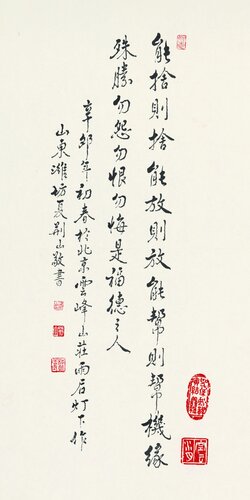 能捨則捨能放則放能幫則幫機緣
殊勝勿怨勿恨勿悔是福德之人
辛卯年初春於北京雲峰山莊雨后灯下作
山東濰坊夏荆山敬書